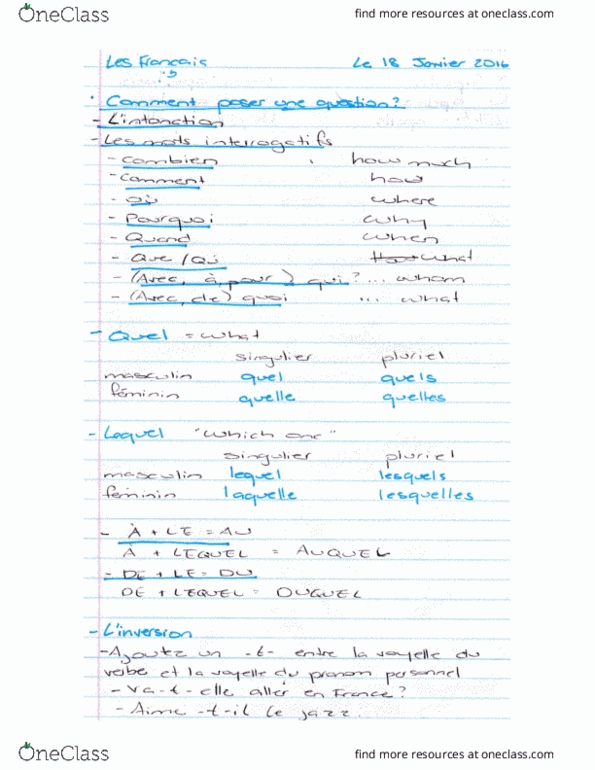 OneClass
find more resources at oneclass.com
Les Français Le 18 Janvier 2016
Comment poser une question?
- L'intonction
- Les mots interrogatifs
- Combien how much
- Comment how
- où where
- Pourquoi why
- Quand when
- Que / Qui what
- (Avec, à, pour) qui? ... whom
- (Avec, de) quoi ... what
- Quel = what
singulier pluriel
masculin quel quels
féminin quelle quelles
- Lequel "which one"
singulier pluriel
masculin lequel lesquels
féminin laquelle lesquelles
- À + LE = AU
À + LEQUEL = AUQUEL
- DE + LE = DU
DE + LEQUEL = DUQUEL
- L'inversion
- Ajoutez un -t- entre la voyelle du
verbe et la voyelle du pronom personnel
- Va-t-elle aller en France?
- Aime-t-il le jazz.
OneClass
find more resources at oneclass.com